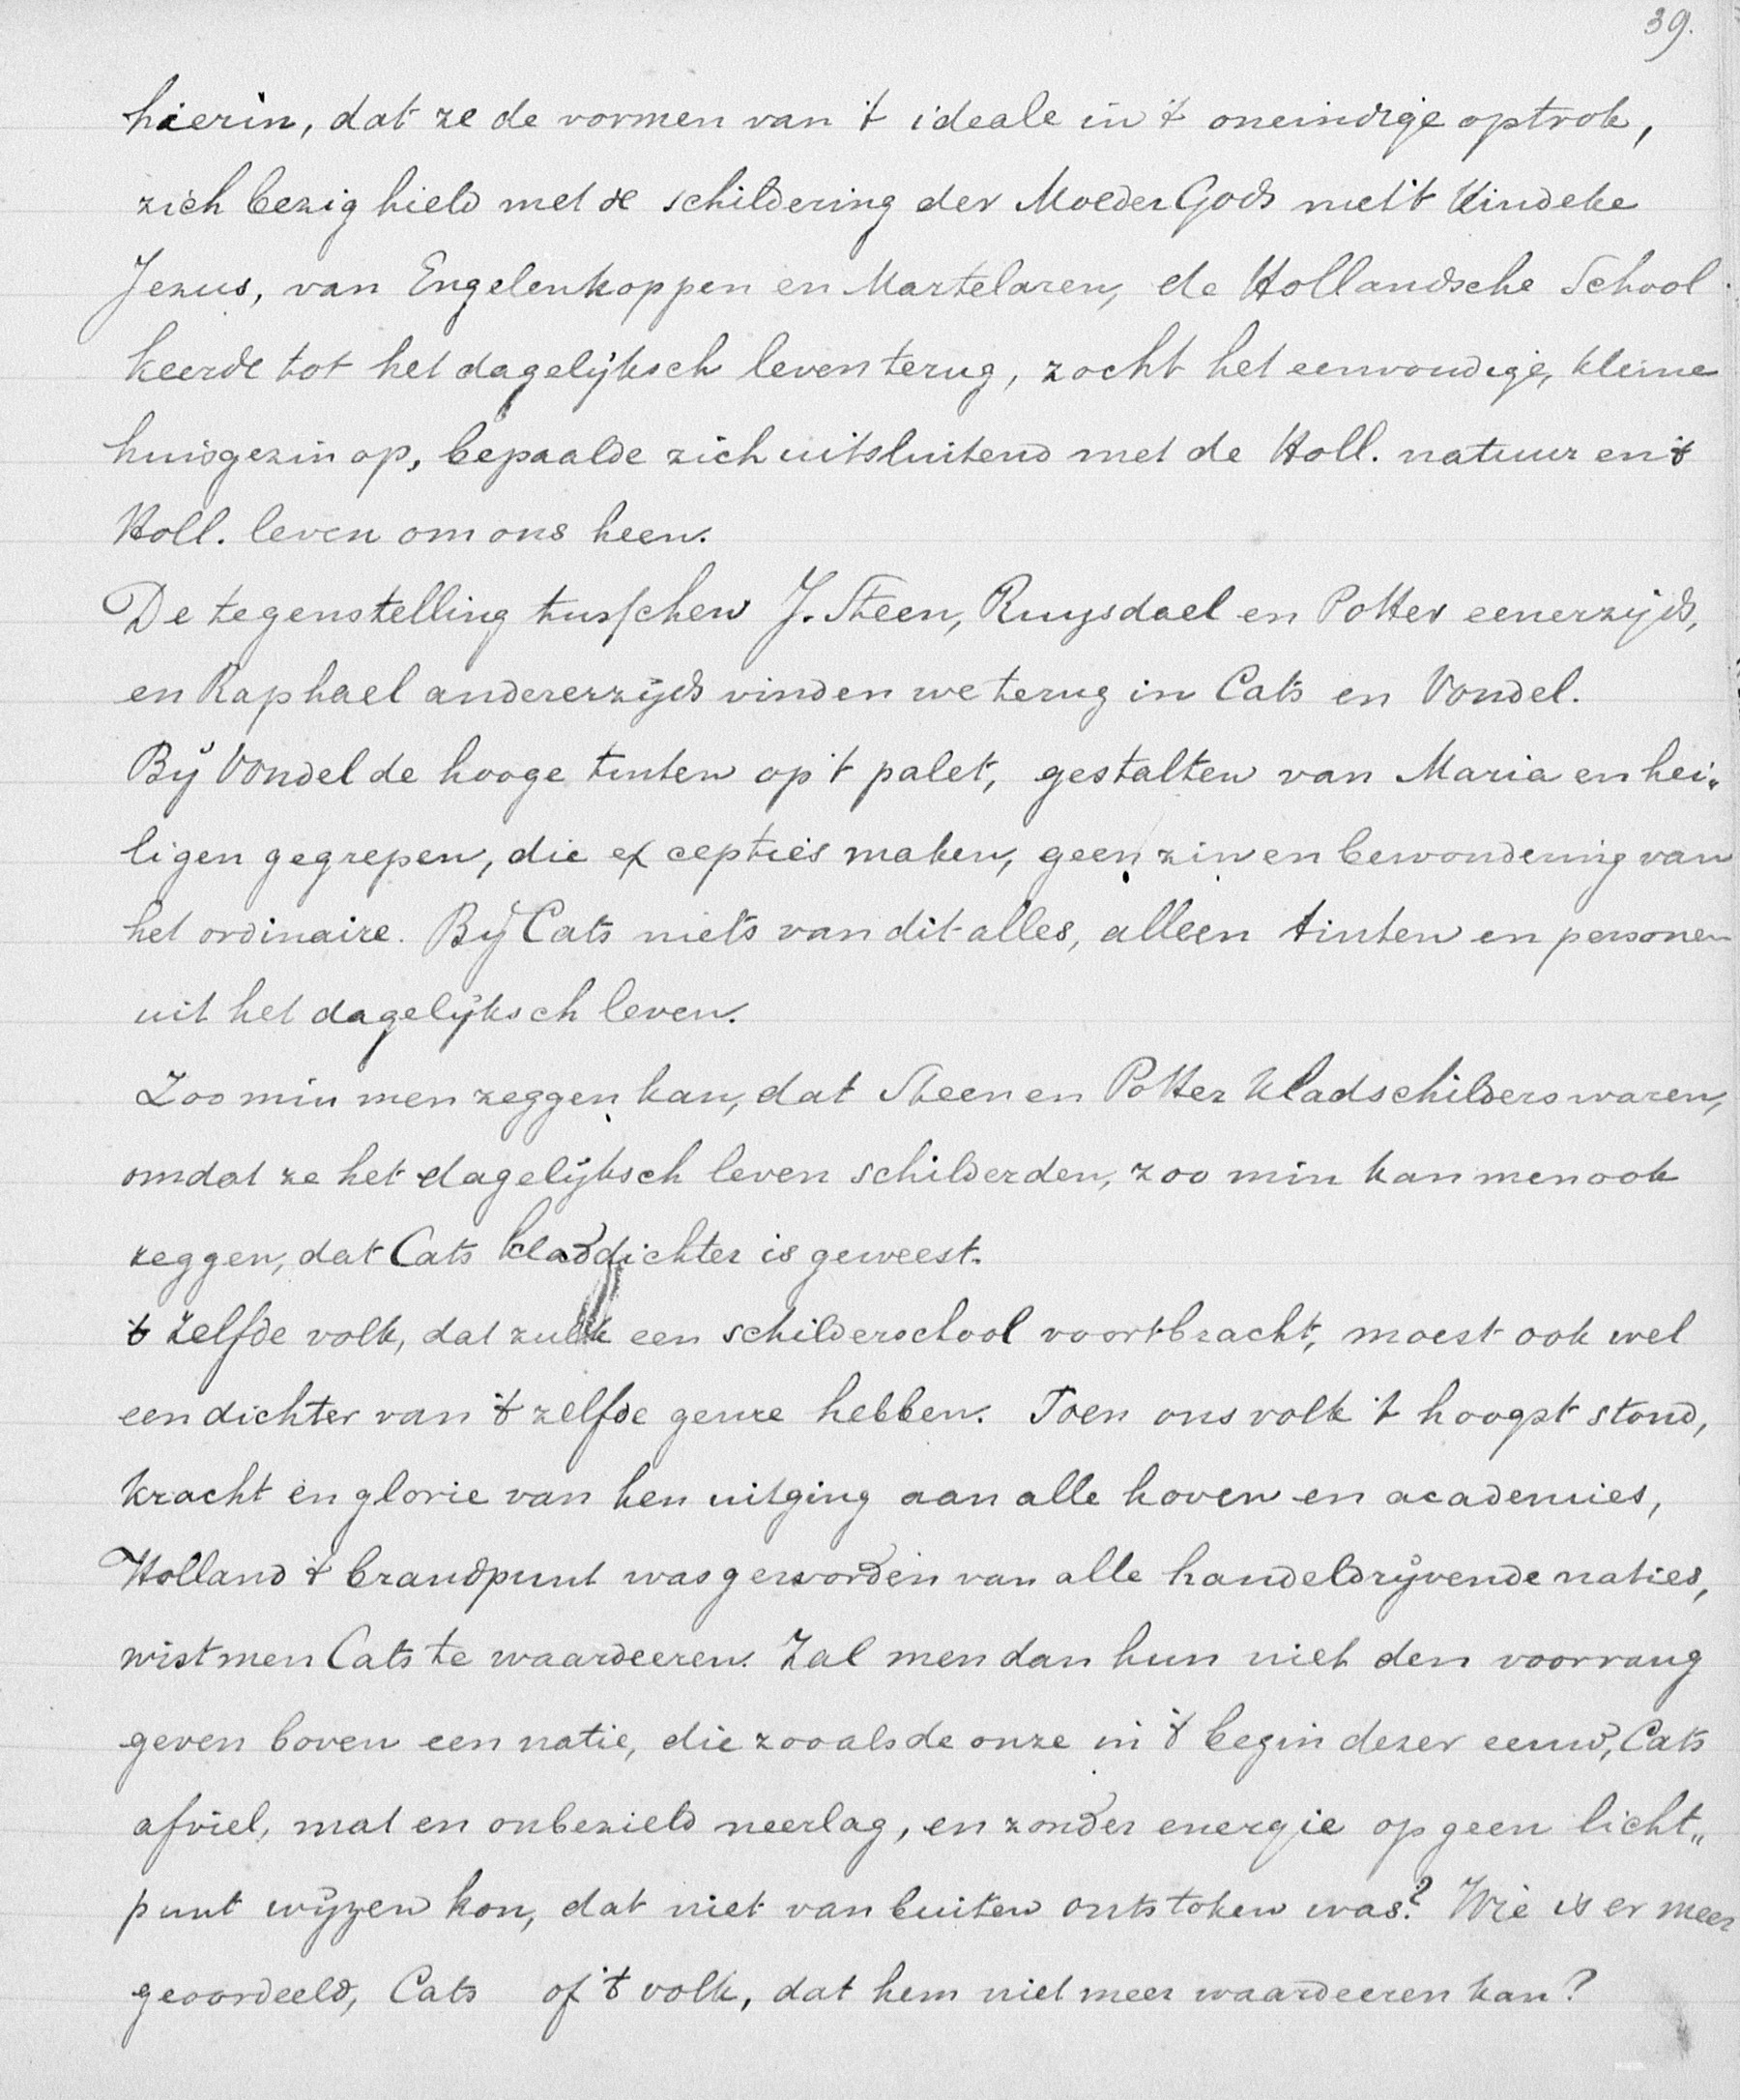 39.
hierin, dat ze de vormen van 't ideale in 't oneindige optrok,
zich bezig hield met de schildering der Moeder Gods met 't Kindeke
Jezus, van Engelenkoppen en Martelaren, de Hollandsche School
keerde tot het dagelijksch leven terug, zocht het eenvoudige, kleine
huisgezin op, bepaalde zich uitsluitend met de Holl. natuur en 't
Holl. leven om ons heen.
De tegenstelling tusschen J. Steen, Ruysdael en Potter eenerzijds,
en Raphael andererzijds vinden we terug in Cats en Vondel.
Bij Vondel de hooge tinten op 't palet, gestalten van Maria en hei„
ligen gegrepen, die excepties maken, geen zin en bewondering van
het ordinaire. Bij Cats niets van dit alles, alleen tinten en personen
uit het dagelijksch leven.
Zoo min men zeggen kan, dat Steen en Potter kladschilders waren,
omdat ze het dagelijksch leven schilderden, zoo min kan men ook
zeggen, dat Cats kladdichter is geweest.
't Zelfde volk, dat zulk een schilderschool voortbracht, moest ook wel
een dichter van 't zelfde genre hebben. Toen ons volk 't hoogst stond,
kracht en glorie van hen uitging aan alle hoven en academies,
Holland 't brandpunt was geworden van alle handeldrijvende naties,
wist men Cats te waardeeren. Zal men dan hun niet den voorrang
geven boven een natie, die zooals de onze in 't begin dezer eeuw, Cats
afviel, mat en onbezield neerlag, en zonder energie op geen licht„
punt wijzen kon, dat niet van buiten ontstoken was? Wie is er meer
geoordeeld, Cats of 't volk, dat hem niet meer waardeeren kan?